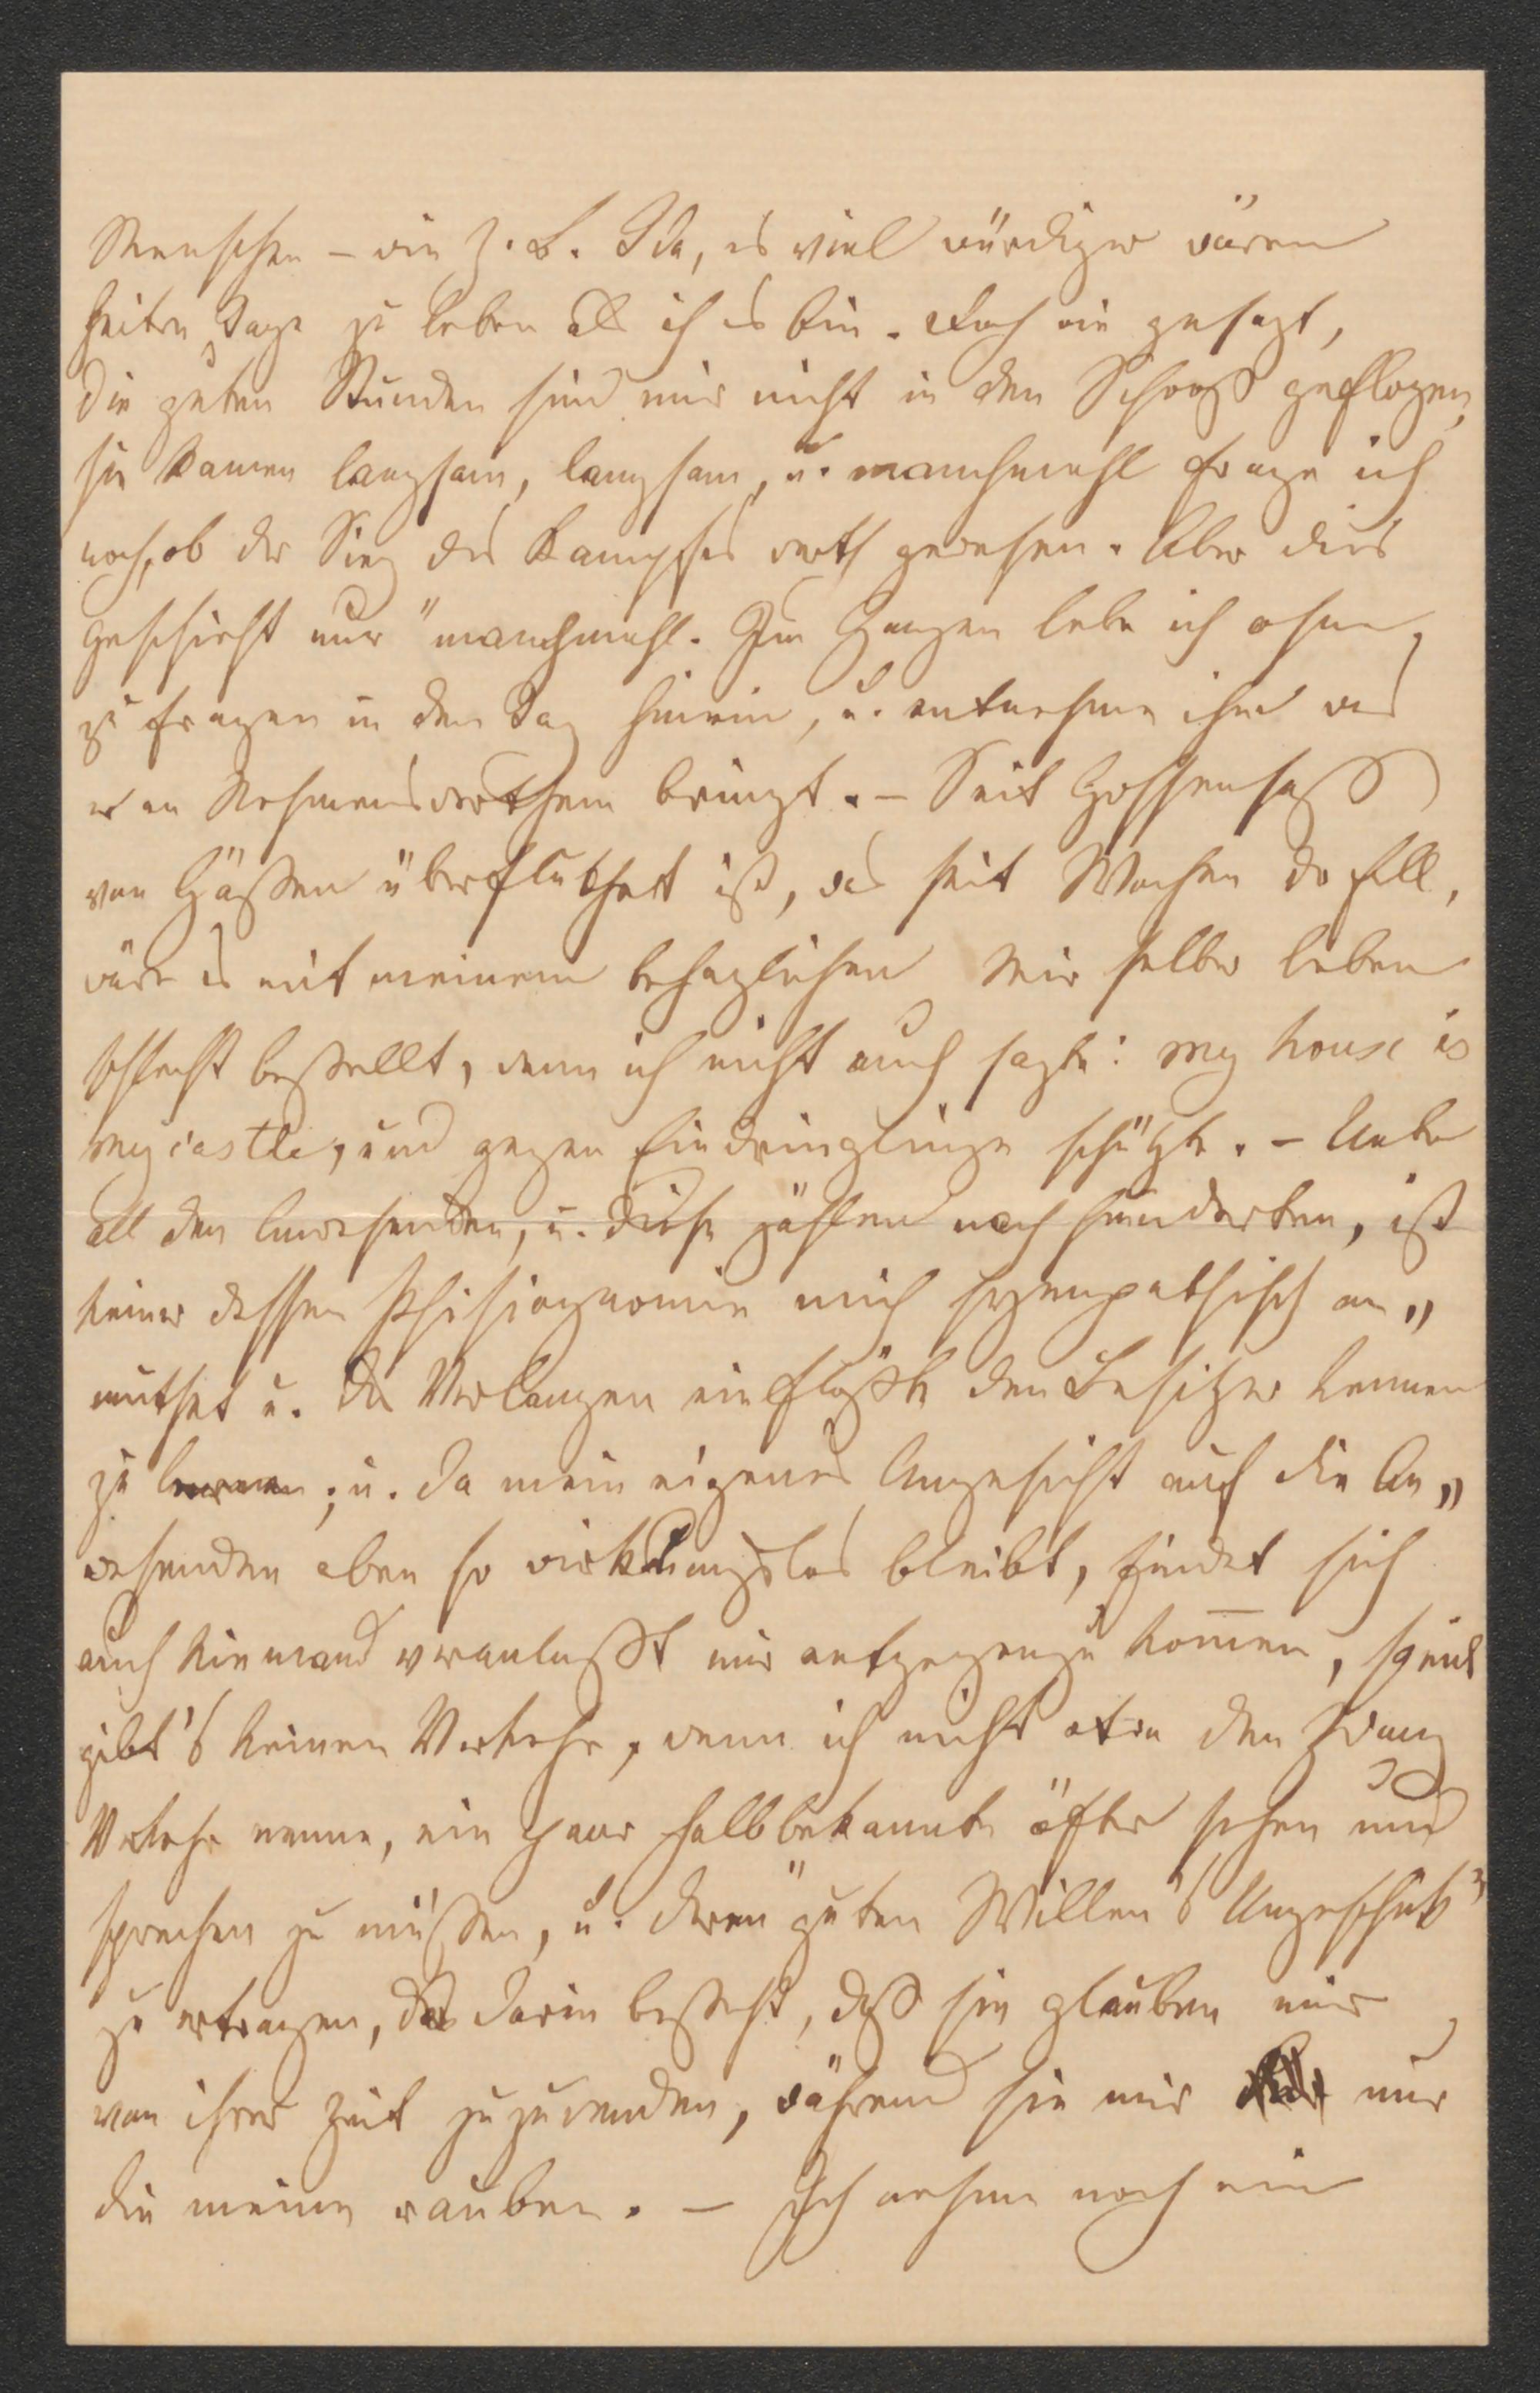 Menschen – wie z. B. Ida, es viel würdiger wären
heitere Tage zu leben als ich es bin. Doch wie gesagt,
die guten Stunden sind mir nicht in den Schooß geflogen,
sie kamen langsam, langsam, u. manchmahl frage ich
noch, ob der Sieg des Kampfes werth gewesen. Aber dies
geschieht nur "manchmahl. Im Ganzen lebe ich ohne
zu fragen in den Tag hinein, u. entnehme ihm was
er an Nehmenswerthem bringt. – Seit Gossensaß
von Gästen überfluthet ist, was seit Wochen der Fall,
wäre es mit meinem behaglichen Mir selber leben
schlecht bestellt, wenn ich nicht auch sagte: my house is
my castle, und gegen Eindringlinge schützte. – Unter
all den Anwesenden, u. diese zählen nach hunderten, ist
keiner dessen Phisiognomie mich sympathisch an„
muthet u. das Verlangen einflößte den Besitzer kennen
zu lernen; u. da mein eigenes Angesicht auf die An„
wesenden eben so wirkungslos bleibt, findet sich
auch Niemand veranlaßt mir entgegenzukom̅en, somit
gibt's keinen Verkehr, wenn ich nicht etwa den Zwang
Verkehr nenne, ein paar halbbekannte öfter sehen und
sprechen zu müssen, u. deren "guten Willen's Ungeschick"
zu ertragen, das darin besteht, daß sie glauben mir
von ihrer Zeit zuzuwenden, während sie mir nur
die meine rauben. – Ich nehme noch ein